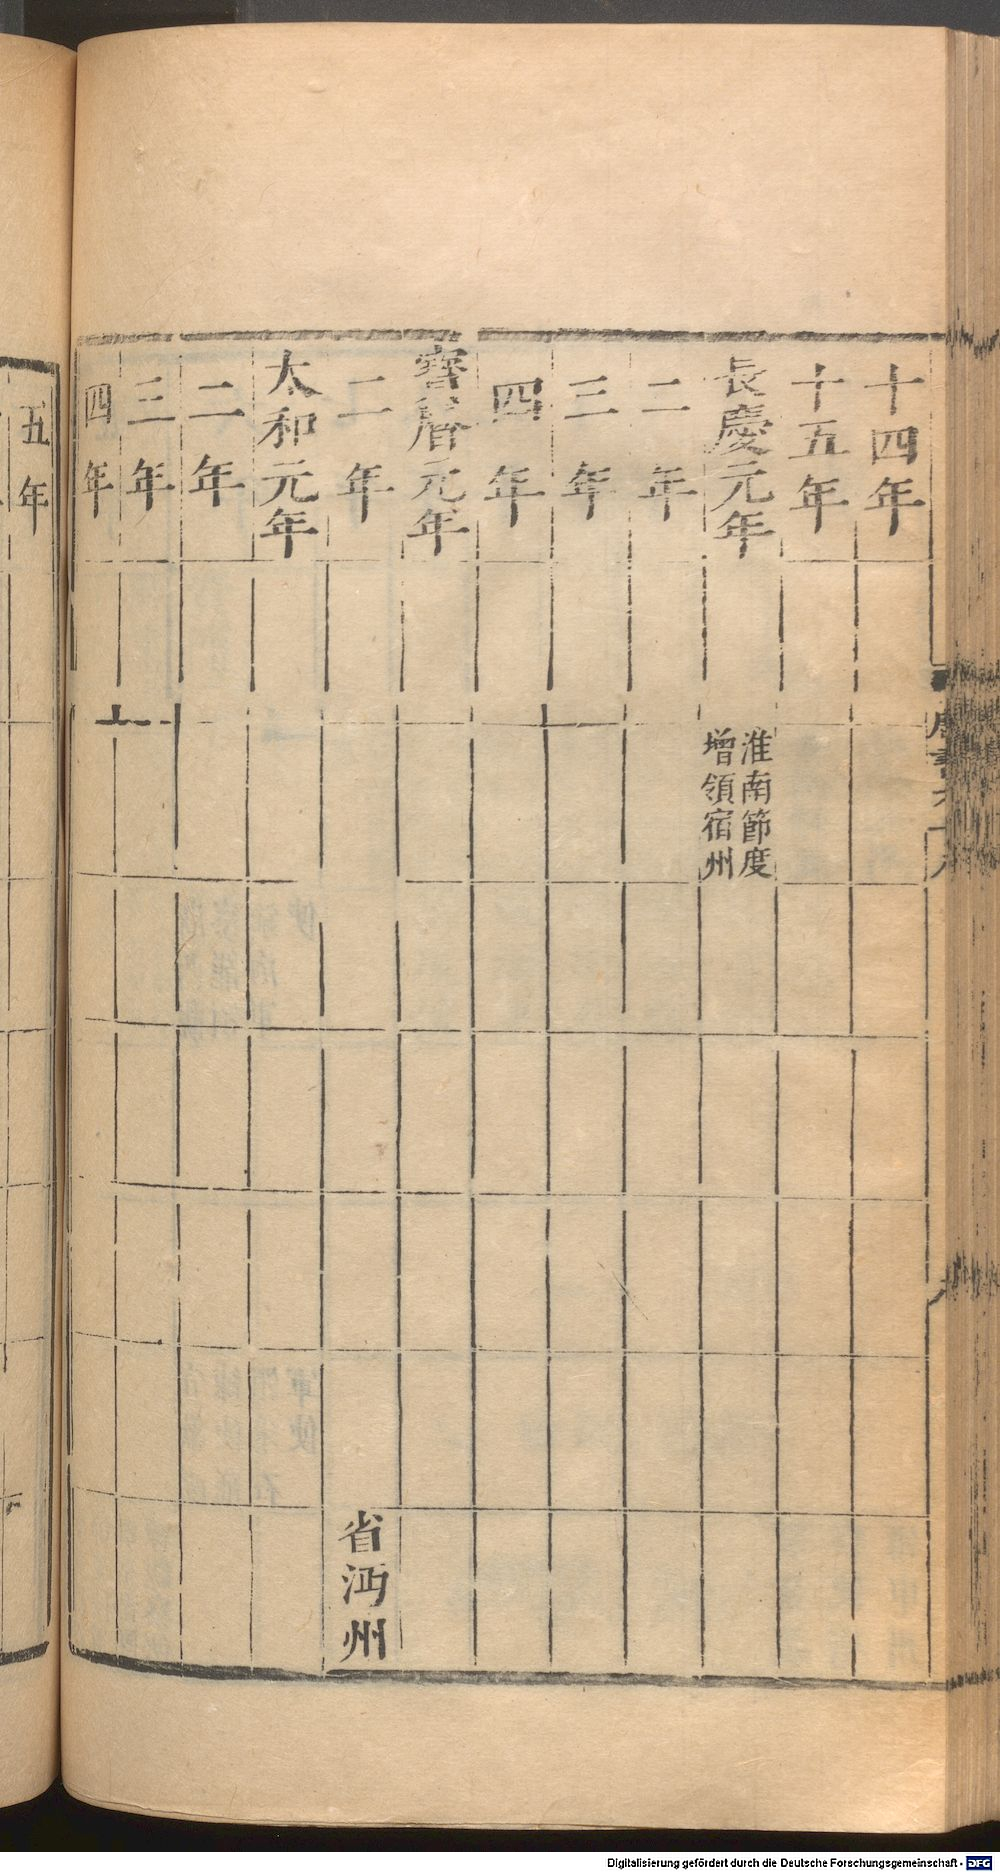 十四年
十五年
長慶元年
淮南節度
增領宿州
二年
三年
四年
寶曆元年
二年
省沔州
太和元年
二年
三年
四年
五年
Digitalisierung gefördert durch die Deutsche Forschungsgemeinschaft - DFG